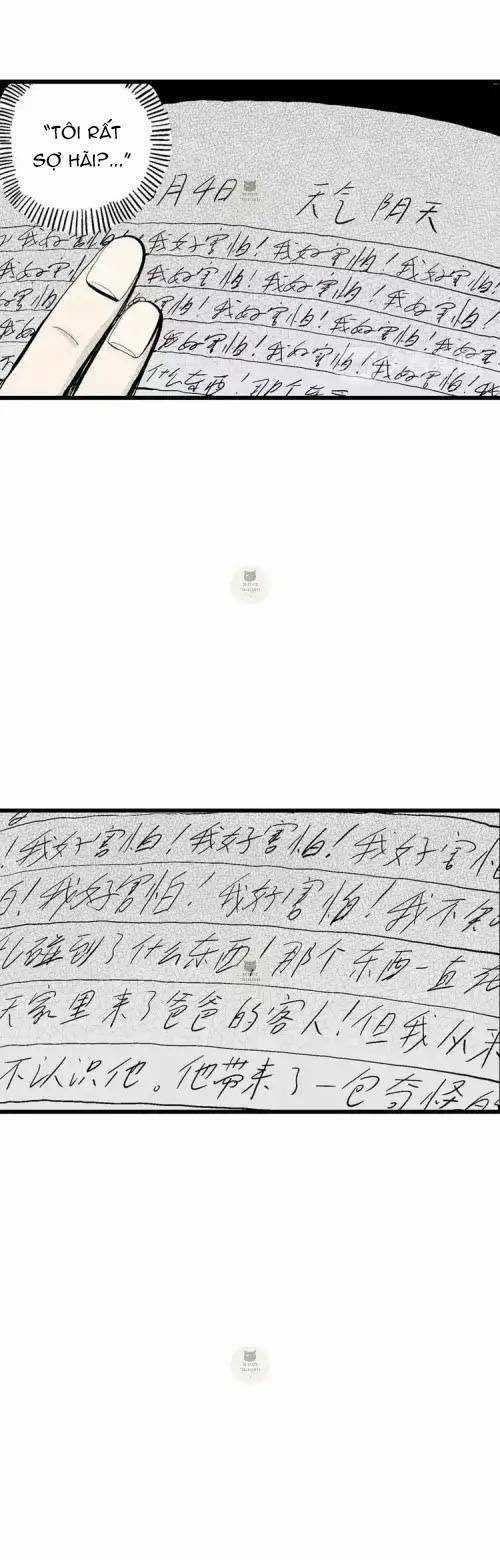 “TÔI RẤT
SỢ HÃI?...”
月4日 天气 阴天
我好害怕！我好害怕！我好害怕！我好害怕！
我好害怕！我好害怕！我好害怕！我好害怕！
我好害怕！我好害怕！我好害怕！我好害怕！
我好害怕！我好害怕！我好害怕！我
什么东西！那个东西
！我好害怕！我好害怕！我好害
怕！我好害怕！我好害怕！我不知
碰到了什么东西！那个东西一直在
天家里来了爸爸的客人！但我从来
不认识他。他带来了一包奇怪的